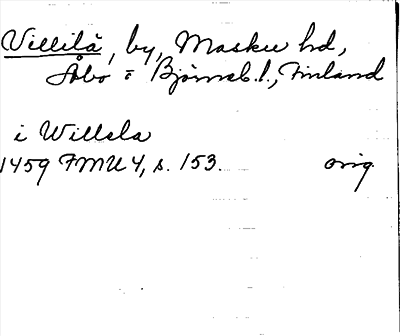 Villilä, by, Masku hd,
Åbo o Björneb. l., Finland
i Willela
1459 FMU 4, s. 153. orig.